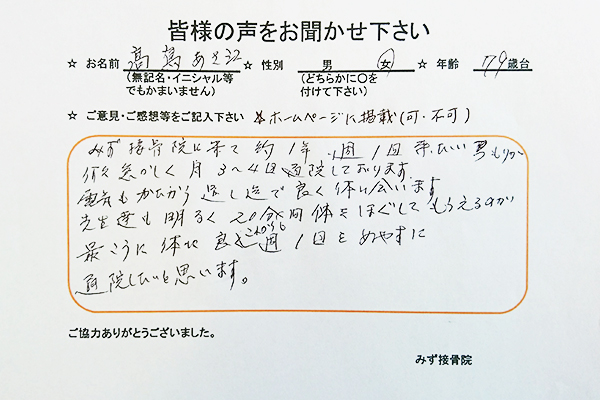 皆様の声をお聞かせ下さい
☆ お名前 高 ☆ 性別 男 女 ☆ 年齢 79歳台
(無記名・イニシャル等でもかまいません) (どちらかに〇を付けて下さい)
☆ ご意見・ご感想等をご記入下さい ホームページに掲載(可・不可)
みず接骨院に来て 約1年 週1回 来たい
忙しく 月3〜4日通院しております
電気も 良く体に合います
先生達も明るく 20分間体をほぐしてもらえるのが
最こうに体も良く これからも 週1回をめやすに
通院したいと思います。
ご協力ありがとうございました。
みず接骨院